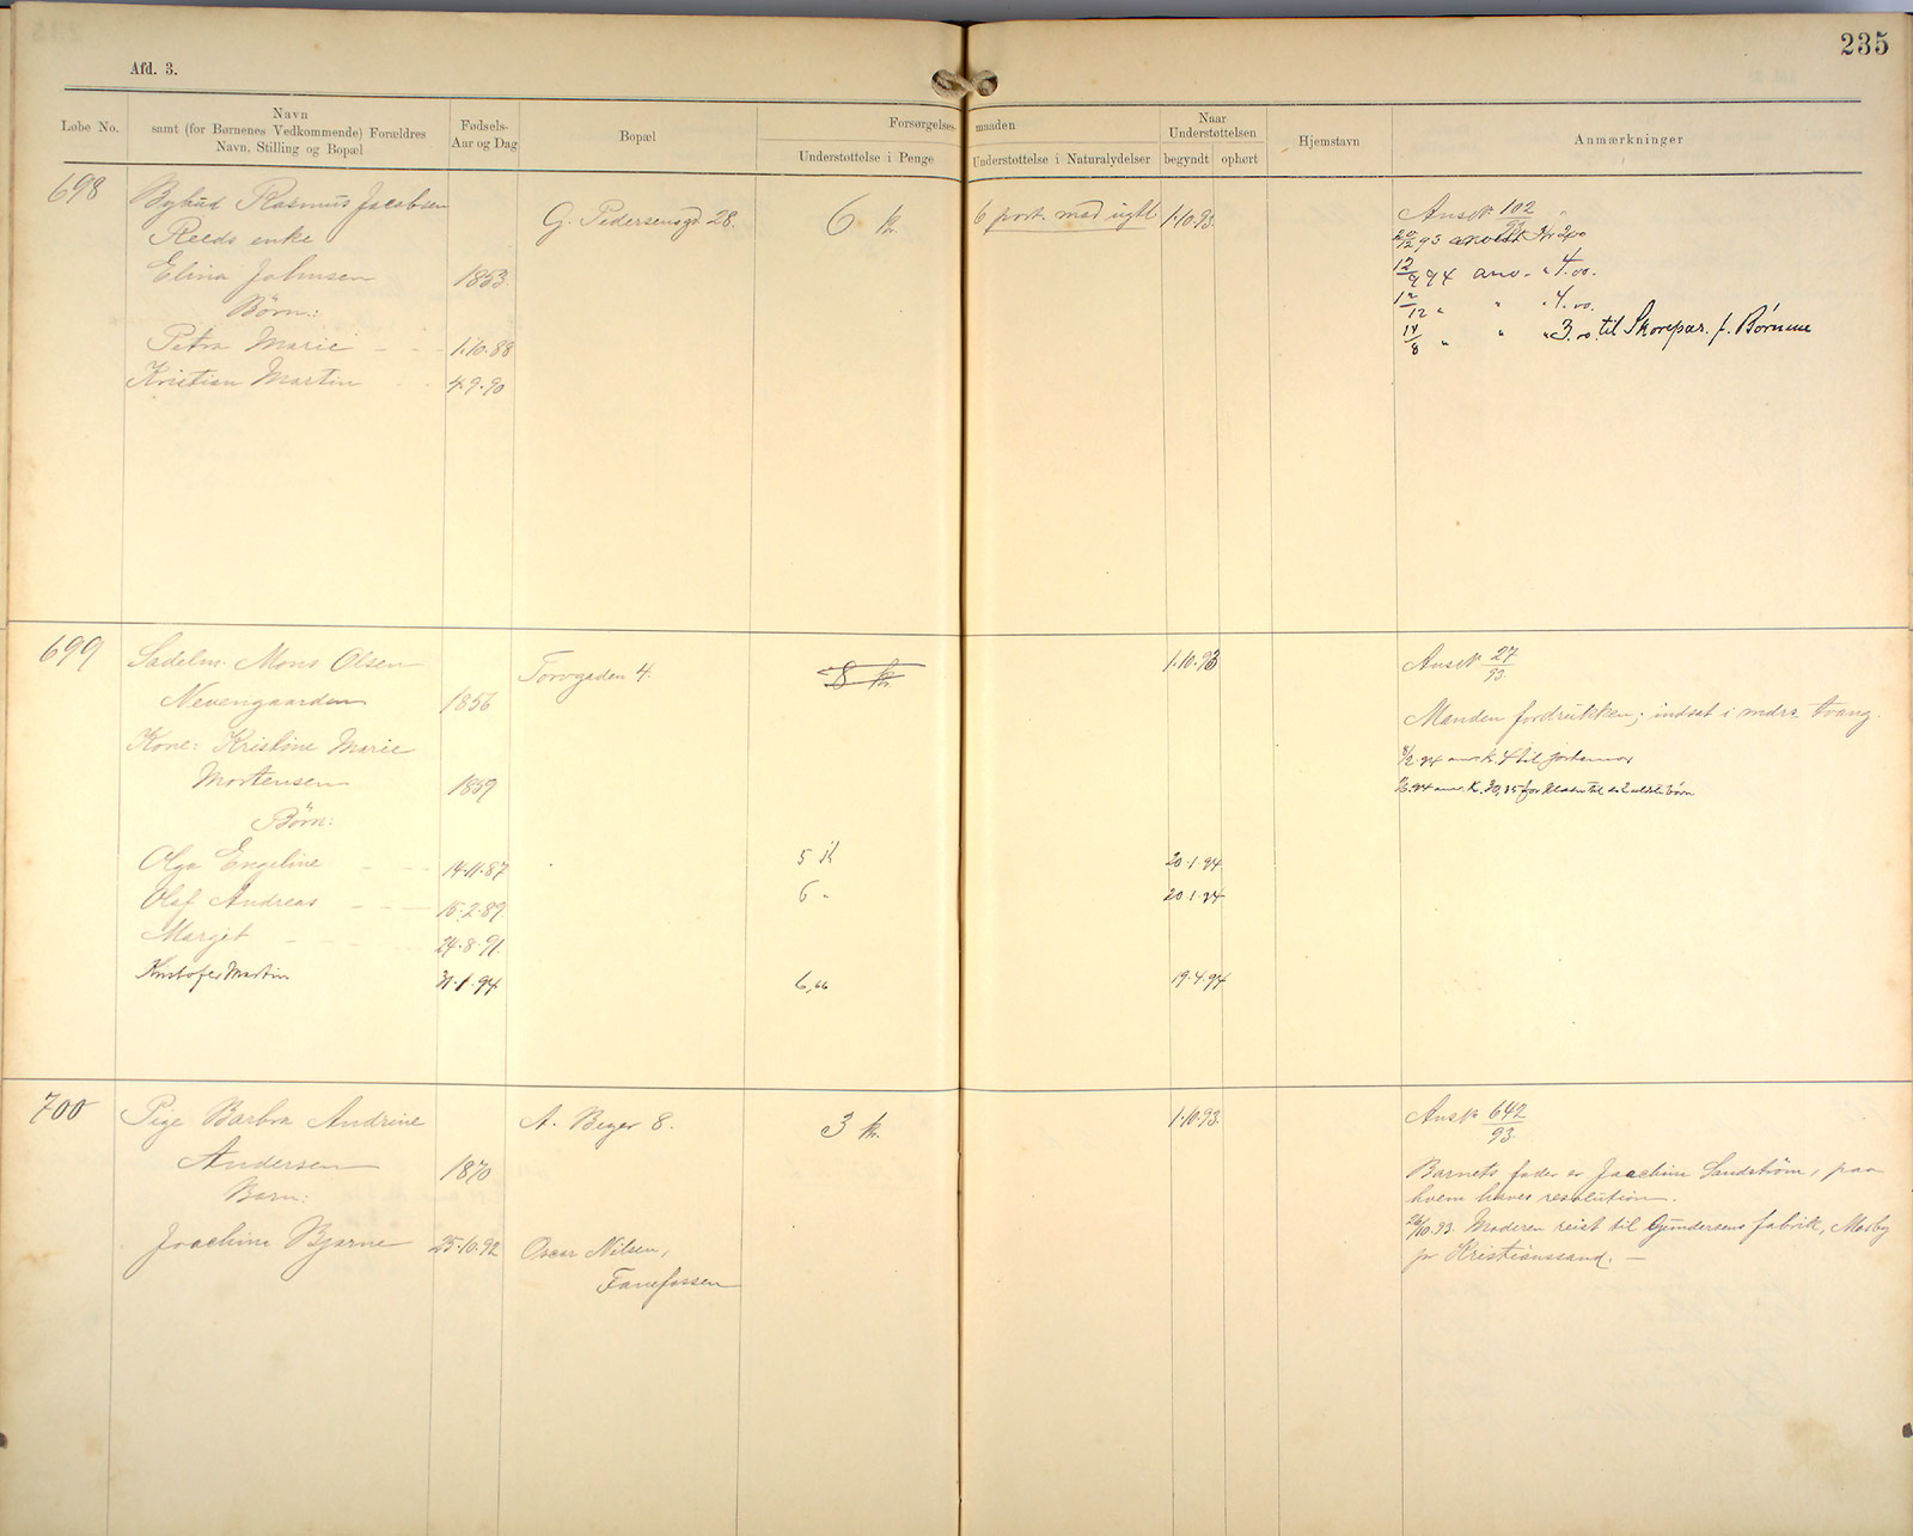 235
Afd. 3.
Løbe No.
Navn
samt (for Børnenes Vedkommende) Forældres
Navn, Stilling og Bopæl
Fødsels-
Aar og Dag
Bopæl
Forsørgelses-
maaden
Understøttelse i Penge
Understøttelse i Naturalydelser
Naar
Understøttelsen
begyndt
ophørt
Hjemstavn
Anmærkninger
698
Bybud Rasmus Jacobsen
Reeds enke
Elina Johnsen 1853.
Børn:
Petra Marie - - - 1.10.88
Kristian Martin - - 4.9.90
G. Pedersensgd 28.
6 kr.
6 port. mad ugtl
1.10.93.
Ansøk 102
20/12 93 Kr 2,00
12/9 94 anv. " 4.00.
12/12 " " " 4.00.
14/8 " " " 3.00 til Skorepar. f. Børnene
699
Sadelm. Mons Olsen
Nevengaarden 1856
Kone: Kristine Marie
Mortensen 1859
Børn:
Olga Engeline - - - 14.11.87
Olaf Andreas - - - 15.2.89.
Marget - - - 24.8.91.
Kristofer Martin 31.1.94
Torvgaden 4.
8 kr.
5 K
6 "
6,00
1.10.93
20.1.94
20.1.94
19.4.94
Ansøk 27/93.
Manden fordrukken; indsat i mdrs. tvang.
8/2.94 anv. k. 4 til jordemor
94 anv. K. 30,35 for til børn
700
Pige Barbra Andrine
Andersen 1870
Barn:
Joachim Bjarne 25.10.92
A. Beyer 8.
Oscar Nilsen,
Fanefossen
3 kr.
1.10.93.
Ansk 642/93.
Barnets fader er Joachim Sandstrøm, paa
hvem haves resolution.
26/10.93. Moderen reist til Gundersens fabrik, Mosby
pr Kristianssand. —